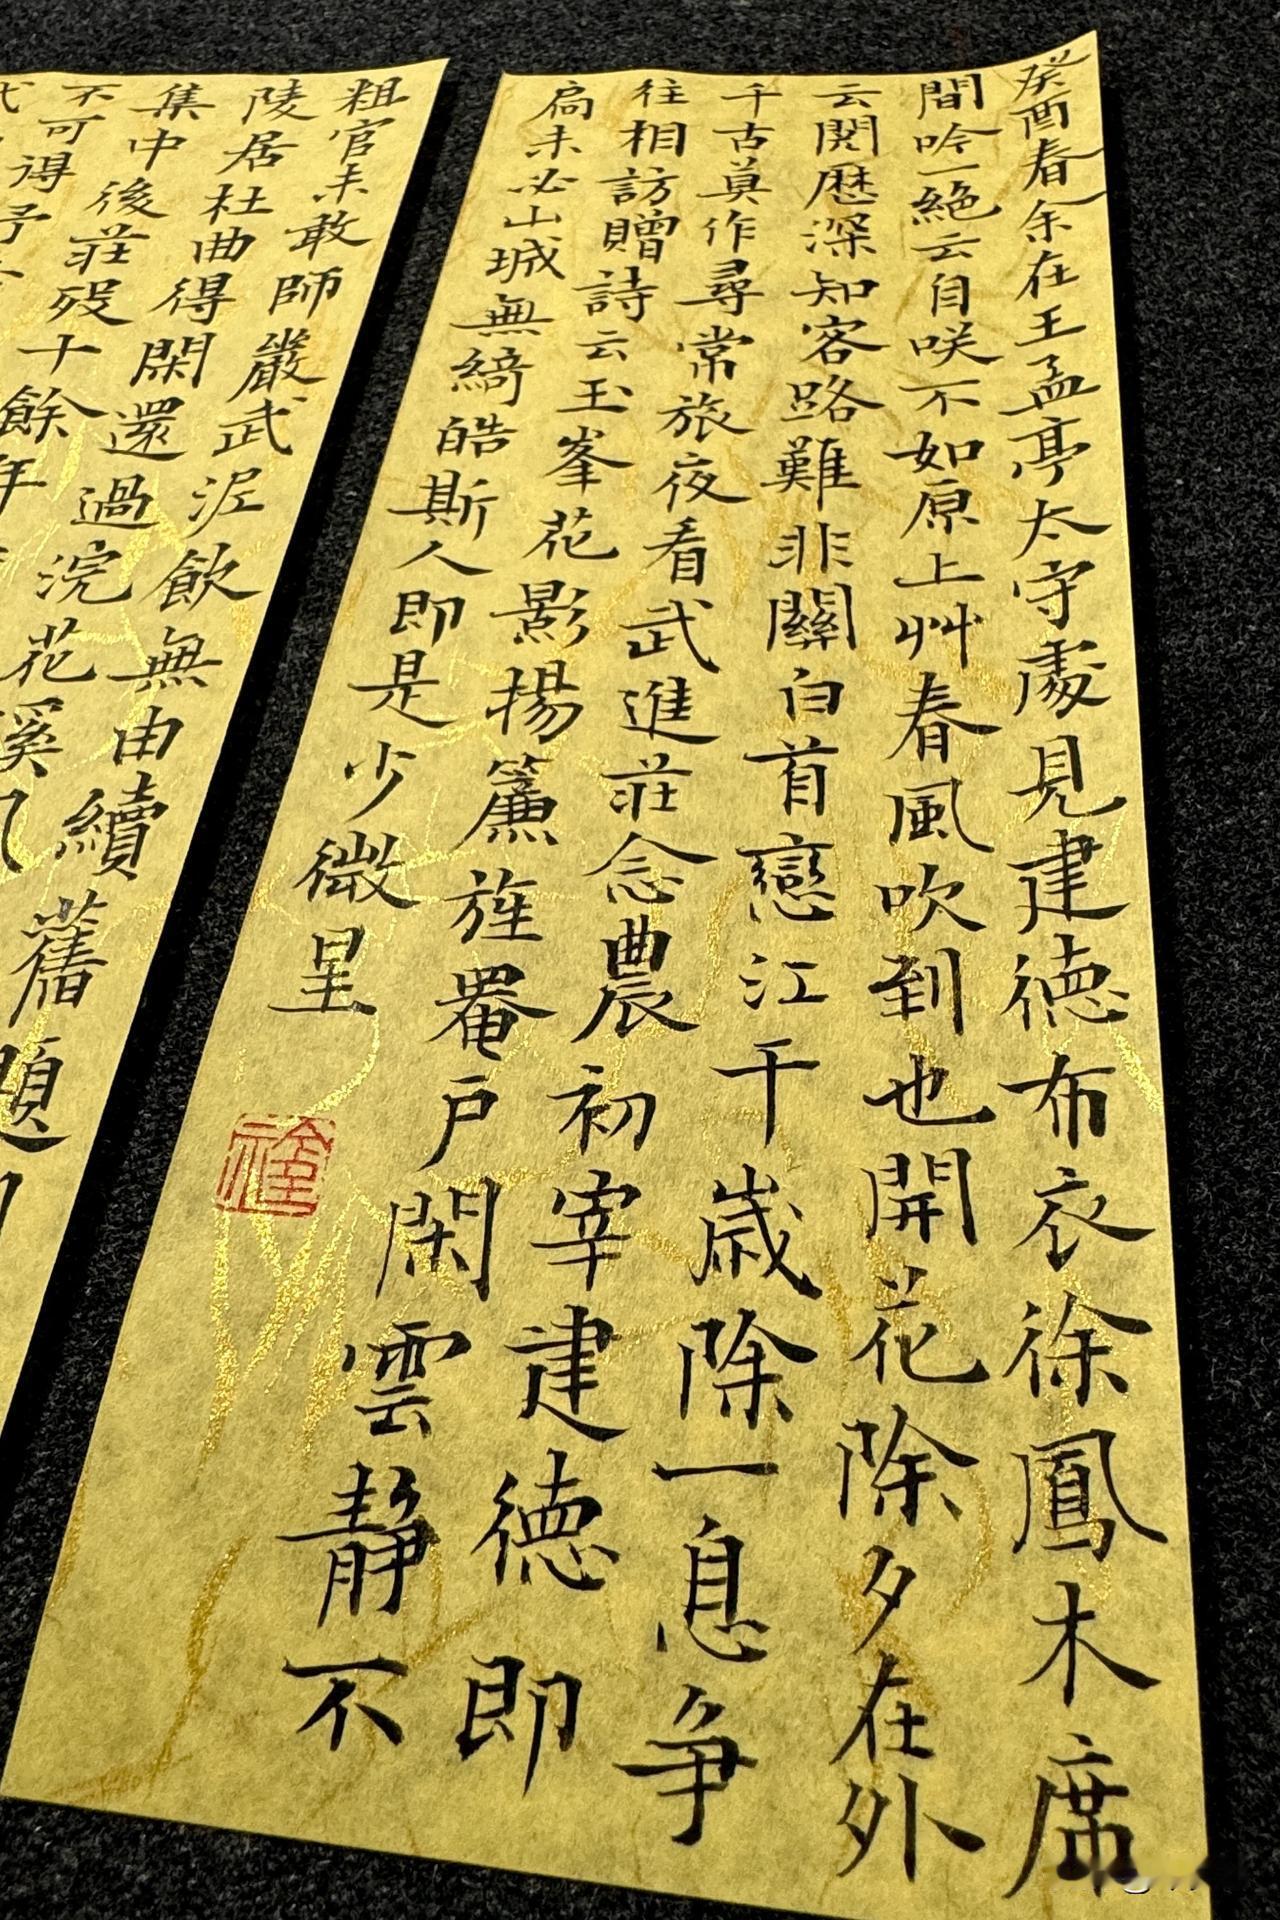 癸酉春余在王孟亭太守處見建德布衣徐鳳木席
間吟一絕云自咲不如原上艸春風吹到也開花除夕在外
云閱歷深知客路難非關白首戀江干歲除一息爭
千古莫作尋常旅夜看武進莊念農初宰建德即
往相訪贈詩云玉峯花影揚簾旌罨戶閑雲靜不
扃未必山城無綺皓斯人即是少微星
粗官未敢師嚴武泥飲無由續舊題
陵居杜曲得閑還過浣花溪
集中後莊歿十餘年
不可得予